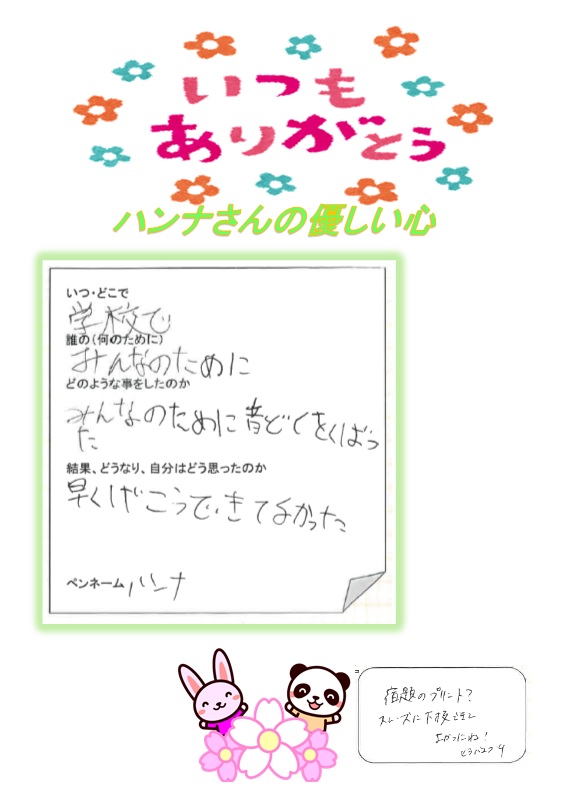 いつも
ありがとう
ハンナさんの優しい心
いつ・どこで
学校で
誰の(何のために)
みんなのために
どのような事をしたのか
みんなのために音どくをくばっ
た
結果、どうなり、自分はどう思ったのか
早くげこうできてよかった
ペンネーム ハンナ
宿題のプリント?
スムーズに下校できて
よかったね!